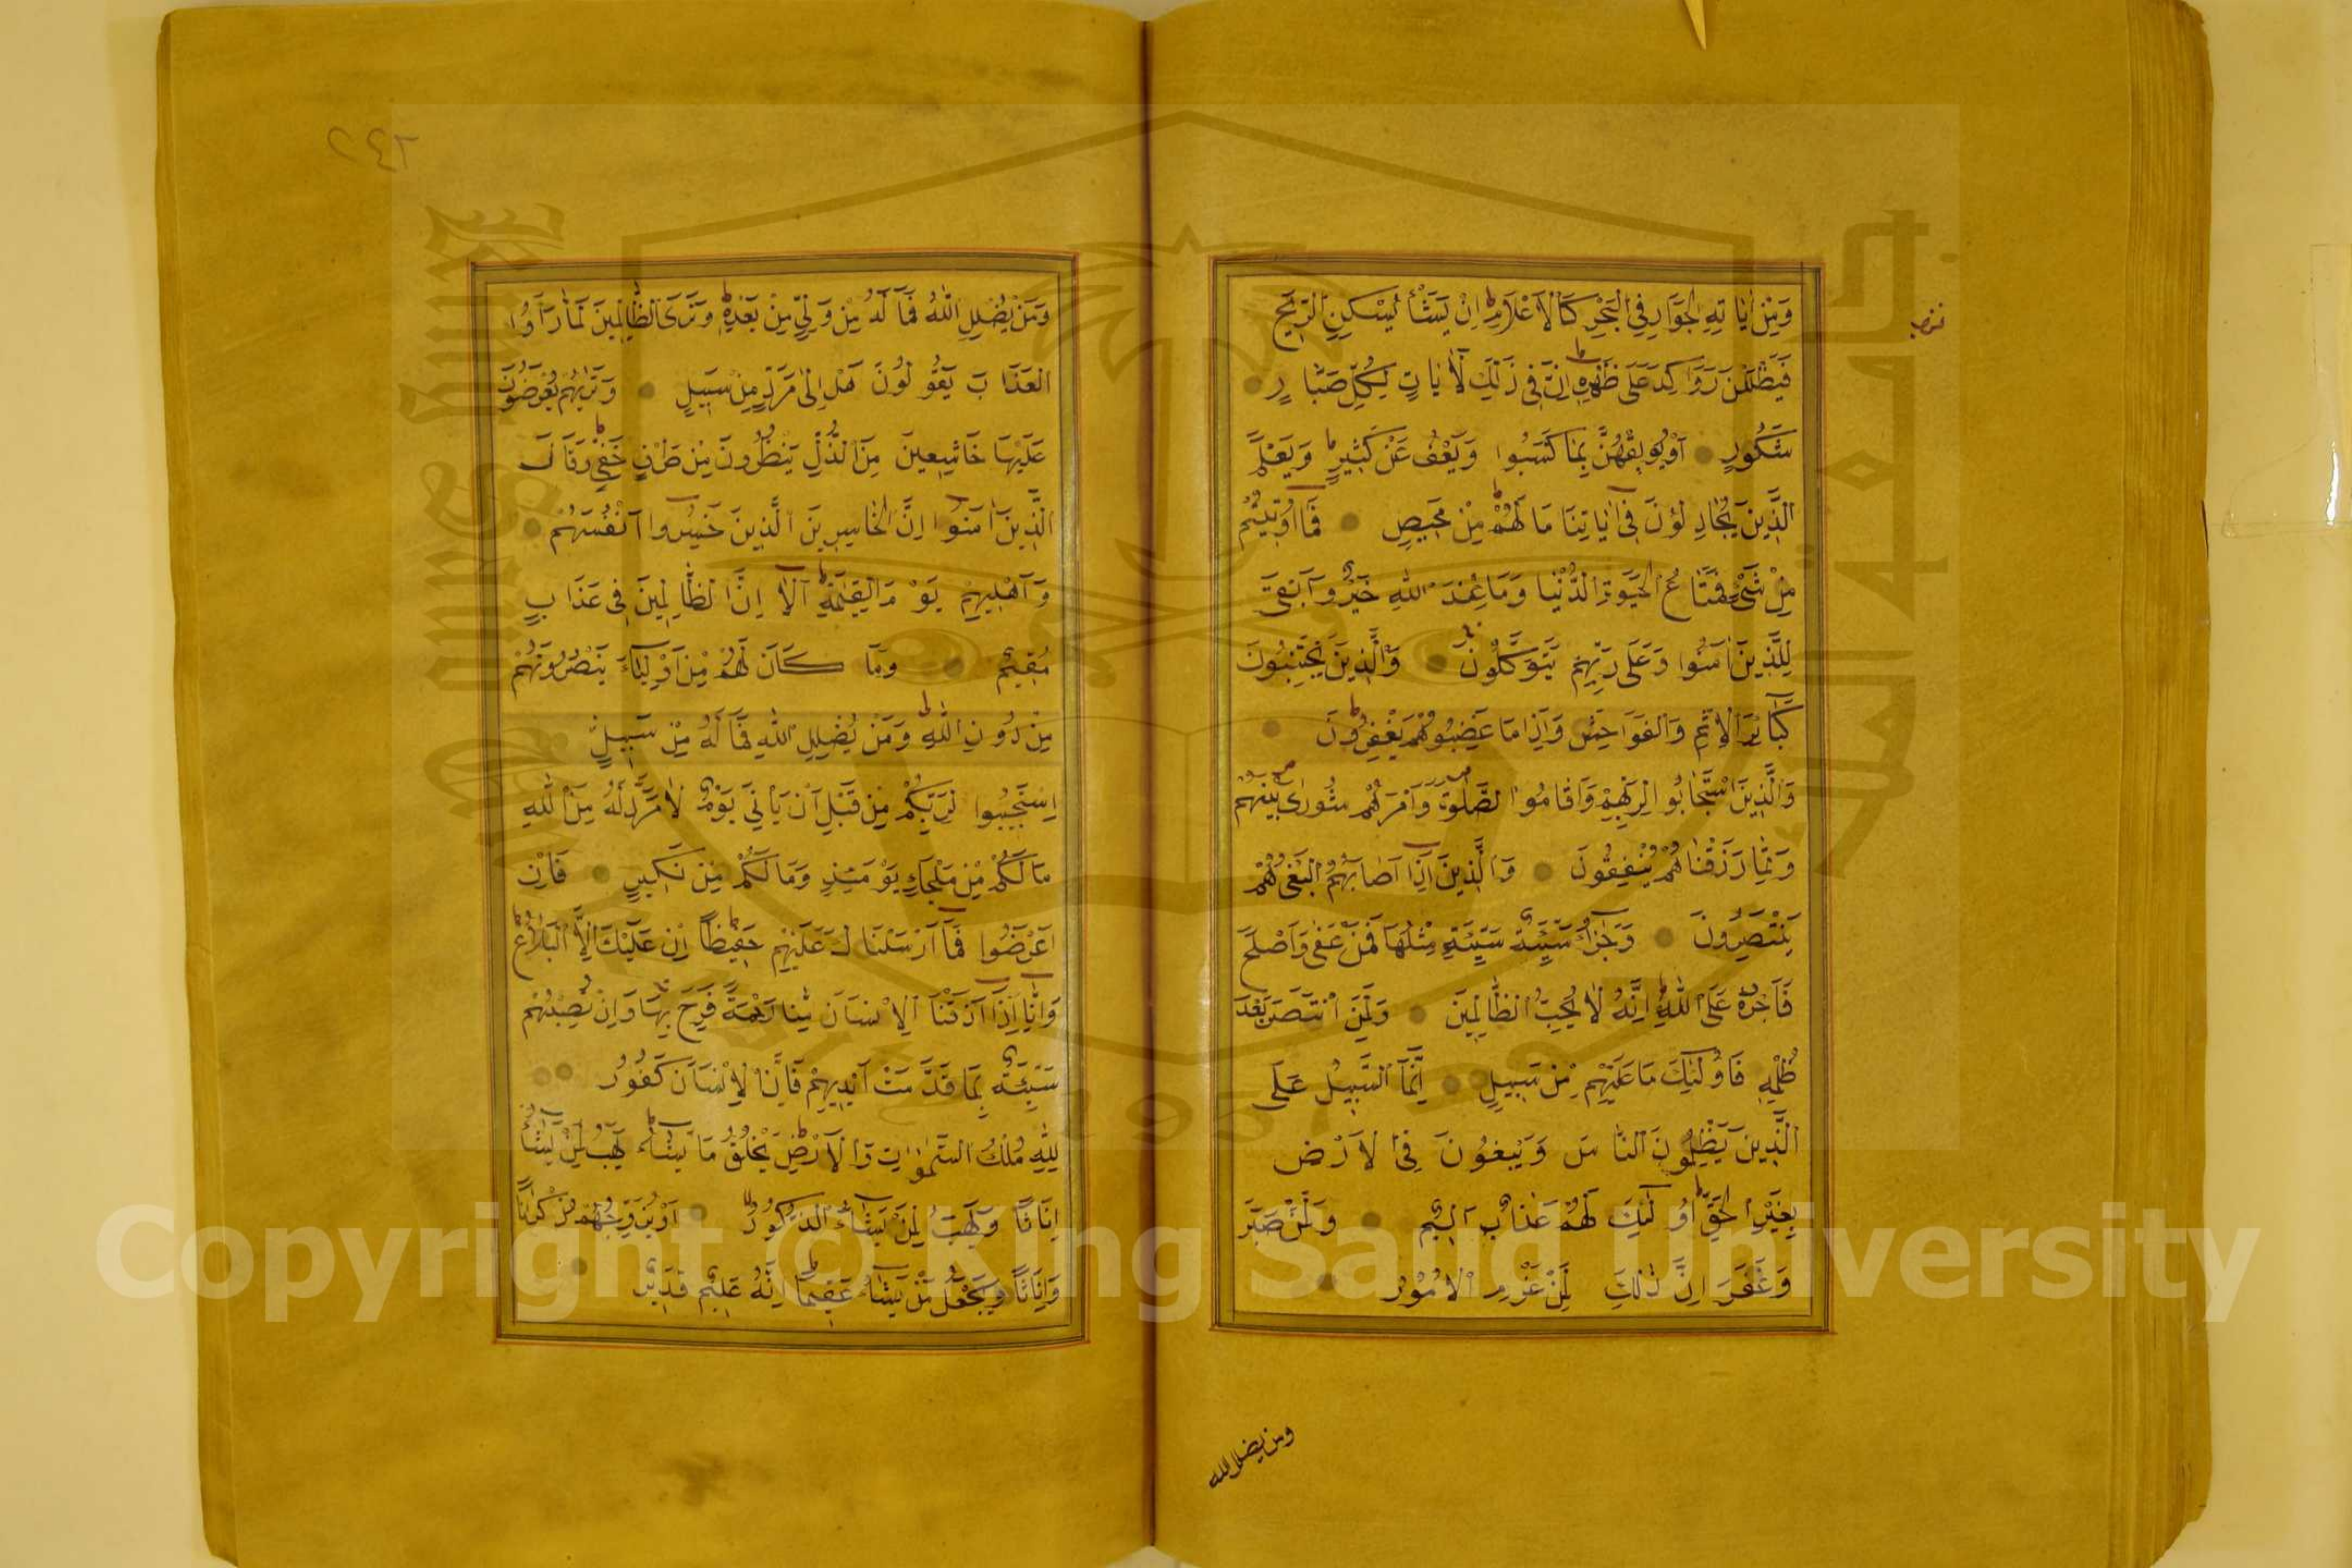 وَمِنْ اٰيَاتِهِ الْجَوَارِ فِي الْبَحْرِ كَالْاَعْلَامِ ۭ اِنْ يَشَأْ يُسْكِنِ الرّ۪يحَ
فَيَظْلَلْنَ رَوَاكِدَ عَلٰى ظَهْرِهِ ۭ اِنَّ فِي ذٰلِكَ لَاٰيَاتٍ لِكُلِّ صَبَّارٍ
شَكُورٍ اَوْ يُوبِقْهُنَّ بِمَا كَسَبُوا وَيَعْفُ عَنْ كَثِيرٍ ۭ وَيَعْلَمَ
الَّذِينَ يُجَادِلُونَ فِي اٰيَاتِنَا مَا لَهُمْ مِنْ مَحِيصٍ فَمَا اُوتِيتُمْ
مِنْ شَيْءٍ فَمَتَاعُ الْحَيٰوةِ الدُّنْيَا وَمَا عِنْدَ اللّٰهِ خَيْرٌ وَاَبْقٰى
لِلَّذِينَ اٰمَنُوا وَعَلٰى رَبِّهِمْ يَتَوَكَّلُونَ وَالَّذِينَ يَجْتَنِبُونَ
كَبَائِرَ الْاِثْمِ وَالْفَوَاحِشَ وَاِذَا مَا غَضِبُوا هُمْ يَغْفِرُونَ
وَالَّذِينَ اسْتَجَابُوا لِرَبِّهِمْ وَاَقَامُوا الصَّلٰوةَ وَاَمْرُهُمْ شُورٰى بَيْنَهُمْ
وَمِمَّا رَزَقْنَاهُمْ يُنْفِقُونَ وَالَّذِينَ اِذَا اَصَابَهُمُ الْبَغْيُ هُمْ
يَنْتَصِرُونَ وَجَزٰٓؤُا سَيِّئَةٍ سَيِّئَةٌ مِثْلُهَا فَمَنْ عَفٰى وَاَصْلَحَ
فَاَجْرُهُ عَلَى اللّٰهِ ۭ اِنَّهُ لَا يُحِبُّ الظَّالِمِينَ وَلَمَنِ انْتَصَرَ بَعْدَ
ظُلْمِهِ فَاُولٰٓئِكَ مَا عَلَيْهِمْ مِنْ سَبِيلٍ اِنَّمَا السَّبِيلُ عَلَى
الَّذِينَ يَظْلِمُونَ النَّاسَ وَيَبْغُونَ فِي الْاَرْضِ
بِغَيْرِ الْحَقِّ ۭ اُولٰٓئِكَ لَهُمْ عَذَابٌ اَلِيمٌ وَلَمَنْ صَبَرَ
وَغَفَرَ اِنَّ ذٰلِكَ لَمِنْ عَزْمِ الْاُمُورِ
ومن يضلل الله
٢٤٢
وَمَنْ يُضْلِلِ اللّٰهُ فَمَا لَهُ مِنْ وَلِيٍّ مِنْ بَعْدِهِ ۭ وَتَرَى الظَّالِمِينَ لَمَّا رَاَوُا
الْعَذَابَ يَقُولُونَ هَلْ اِلٰى مَرَدٍّ مِنْ سَبِيلٍ وَتَرٰيهُمْ يُعْرَضُونَ
عَلَيْهَا خَاشِعِينَ مِنَ الذُّلِّ يَنْظُرُونَ مِنْ طَرْفٍ خَفِيٍّ ۭ وَقَالَ
الَّذِينَ اٰمَنُوا اِنَّ الْخَاسِرِينَ الَّذِينَ خَسِرُوا اَنْفُسَهُمْ
وَاَهْلِيهِمْ يَوْمَ الْقِيٰمَةِ ۭ اَلَا اِنَّ الظَّالِمِينَ فِي عَذَابٍ
مُقِيمٍ وَمَا كَانَ لَهُمْ مِنْ اَوْلِيَاءَ يَنْصُرُونَهُمْ
مِنْ دُونِ اللّٰهِ ۭ وَمَنْ يُضْلِلِ اللّٰهُ فَمَا لَهُ مِنْ سَبِيلٍ
اِسْتَجِيبُوا لِرَبِّكُمْ مِنْ قَبْلِ اَنْ يَأْتِيَ يَوْمٌ لَا مَرَدَّ لَهُ مِنَ اللّٰهِ
مَا لَكُمْ مِنْ مَلْجَاٍ يَوْمَئِذٍ وَمَا لَكُمْ مِنْ نَكِيرٍ فَاِنْ
اَعْرَضُوا فَمَا اَرْسَلْنَاكَ عَلَيْهِمْ حَفِيظًا ۭ اِنْ عَلَيْكَ اِلَّا الْبَلَاغُ ۭ
وَاِنَّا اِذَا اَذَقْنَا الْاِنْسَانَ مِنَّا رَحْمَةً فَرِحَ بِهَا وَاِنْ تُصِبْهُمْ
سَيِّئَةٌ بِمَا قَدَّمَتْ اَيْدِيهِمْ فَاِنَّ الْاِنْسَانَ كَفُورٌ
لِلّٰهِ مُلْكُ السَّمٰوَاتِ وَالْاَرْضِ يَخْلُقُ مَا يَشَاءُ ۭ يَهَبُ لِمَنْ يَشَاءُ
اِنَاثًا وَيَهَبُ لِمَنْ يَشَاءُ الذُّكُورَ اَوْ يُزَوِّجُهُمْ ذُكْرَانًا
وَاِنَاثًا وَيَجْعَلُ مَنْ يَشَاءُ عَقِيمًا ۭ اِنَّهُ عَلِيمٌ قَدِيرٌ
Copyright © King Saud University